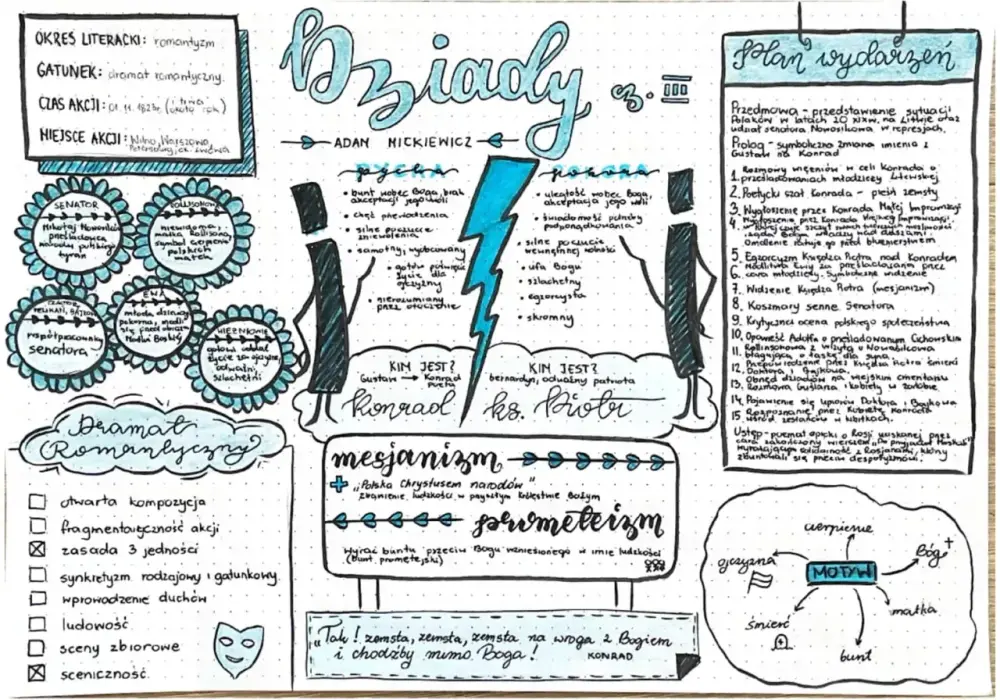 OKRES LITERACKI: romantyzm
GATUNEK: dramat romantyczny.
CZAS AKCJI: 01. 11. 1823r. (i trwa około rok)
MIEJSCE AKCJI: Wilno, Warszawa,
Petersburg, ok. Lwowa
Dziady cz. III
ADAM MICKIEWICZ
SENATOR
Mikołaj Nowosilcow
prześladowca
narodu polskiego
tyran
ROLLISONOWA
niewidoma,
matka Rollisona,
symbol cierpienia
polskich
matek
DOKTOR,
PELIKAN, BAJKOW
współpracownicy
senatora
EWA
młoda dziewczyna
pokorna, modli
się przed obrazem
Matki Boskiej
WIĘŹNIOWIE
gotowi oddać
życie za ojczyznę,
odważni,
szlachetni
PYCHA
• bunt wobec Boga, brak
akceptacji jego woli
• chęć przewodzenia
• silne poczucie
zniewolenia
• samotny, wyobcowany
• gotów poświęcić
życie dla
ojczyzny
• niezrozumiany
przez otoczenie
POKORA
• uległość wobec Boga,
akceptacja jego woli
• świadomość potrzeby
podporządkowania
• silne poczucie
wewnętrznej wolności
• ufa Bogu
• szlachetny
• egzorcysta
• skromny
KIM JEST?
Gustaw → Konrad
poeta
Konrad
KIM JEST?
bernardyn, odważny patriota
ks. Piotr
Dramat
(Romantyczny)
otwarta kompozycja
fragmentaryczność akcji
zasada 3 jedności
synkretyzm rodzajowy i gatunkowy
wprowadzenie duchów
ludowość
sceny zbiorowe
sceniczność
mesjanizm
"Polska Chrystusem narodów"
zbawienie ludzkości w przyszłym Królestwie Bożym
prometeizm
Wyraz buntu przeciw Bogu wzniesionego w imię ludzkości
(bunt prometejski)
"Tak! zemsta, zemsta, zemsta na wroga z Bogiem
i choćby mimo Boga!
KONRAD
Plan wydarzeń
Przedmowa - przedstawienie sytuacji
Polaków w latach 20 XIXw. na Litwie oraz
udział senatora Nowosilcowa w represjach.
Prolog - symboliczna zmiana imienia z
Gustaw na Konrad
1. Rozmowy więźniów w celi Konrada o
prześladowaniach młodzieży litewskiej
2. Poetycki szał Konrada - pieśń zemsty
3. Wygłoszenie przez Konrada Małej Improwizacji
4. Wygłoszenie przez Konrada Wielkiej Improwizacji,
żąda od Boga władzy nad duszami.
Omdlenie ratuje go przed bluźnierstwem
5. Egzorcyzm Księdza Piotra nad Konradem
6. Modlitwa Ewy za prześladowaną przez
cara młodzież. Symboliczne widzenie
7. Widzenie Księdza Piotra (mesjanizm)
8. Koszmary senne Senatora
9. Krytyczna ocena polskiego społeczeństwa
10. Opowieść Adolfa o prześladowanym Cichowskim
11. Rollinsonowa z wizytą u Nowosilcowa
błagająca o łaskę dla syna.
12. Przepowiedzenie przez Księdza Piotra śmierci
Doktora i Bajkowa.
13. Obrzęd dziadów na wiejskim cmentarzu
Rozmowa Guślarza i kobiety w żałobie
14. Pojawienie się upiorów Doktora i Bajkowa
15. Rozpoznanie przez kobietę Konrada
wśród zesłańców w kibitkach.
Ustęp - poemat epicki o Rosji uciskanej przez
cara zakończony wierszem "Do przyjaciół Moskali"
wyrażającym solidarność z Rosjanami, którzy
zbuntowali się przeciw despotyzmowi.
MOTYW
cierpienie
Bóg
matka
bunt
śmierć
ojczyzna